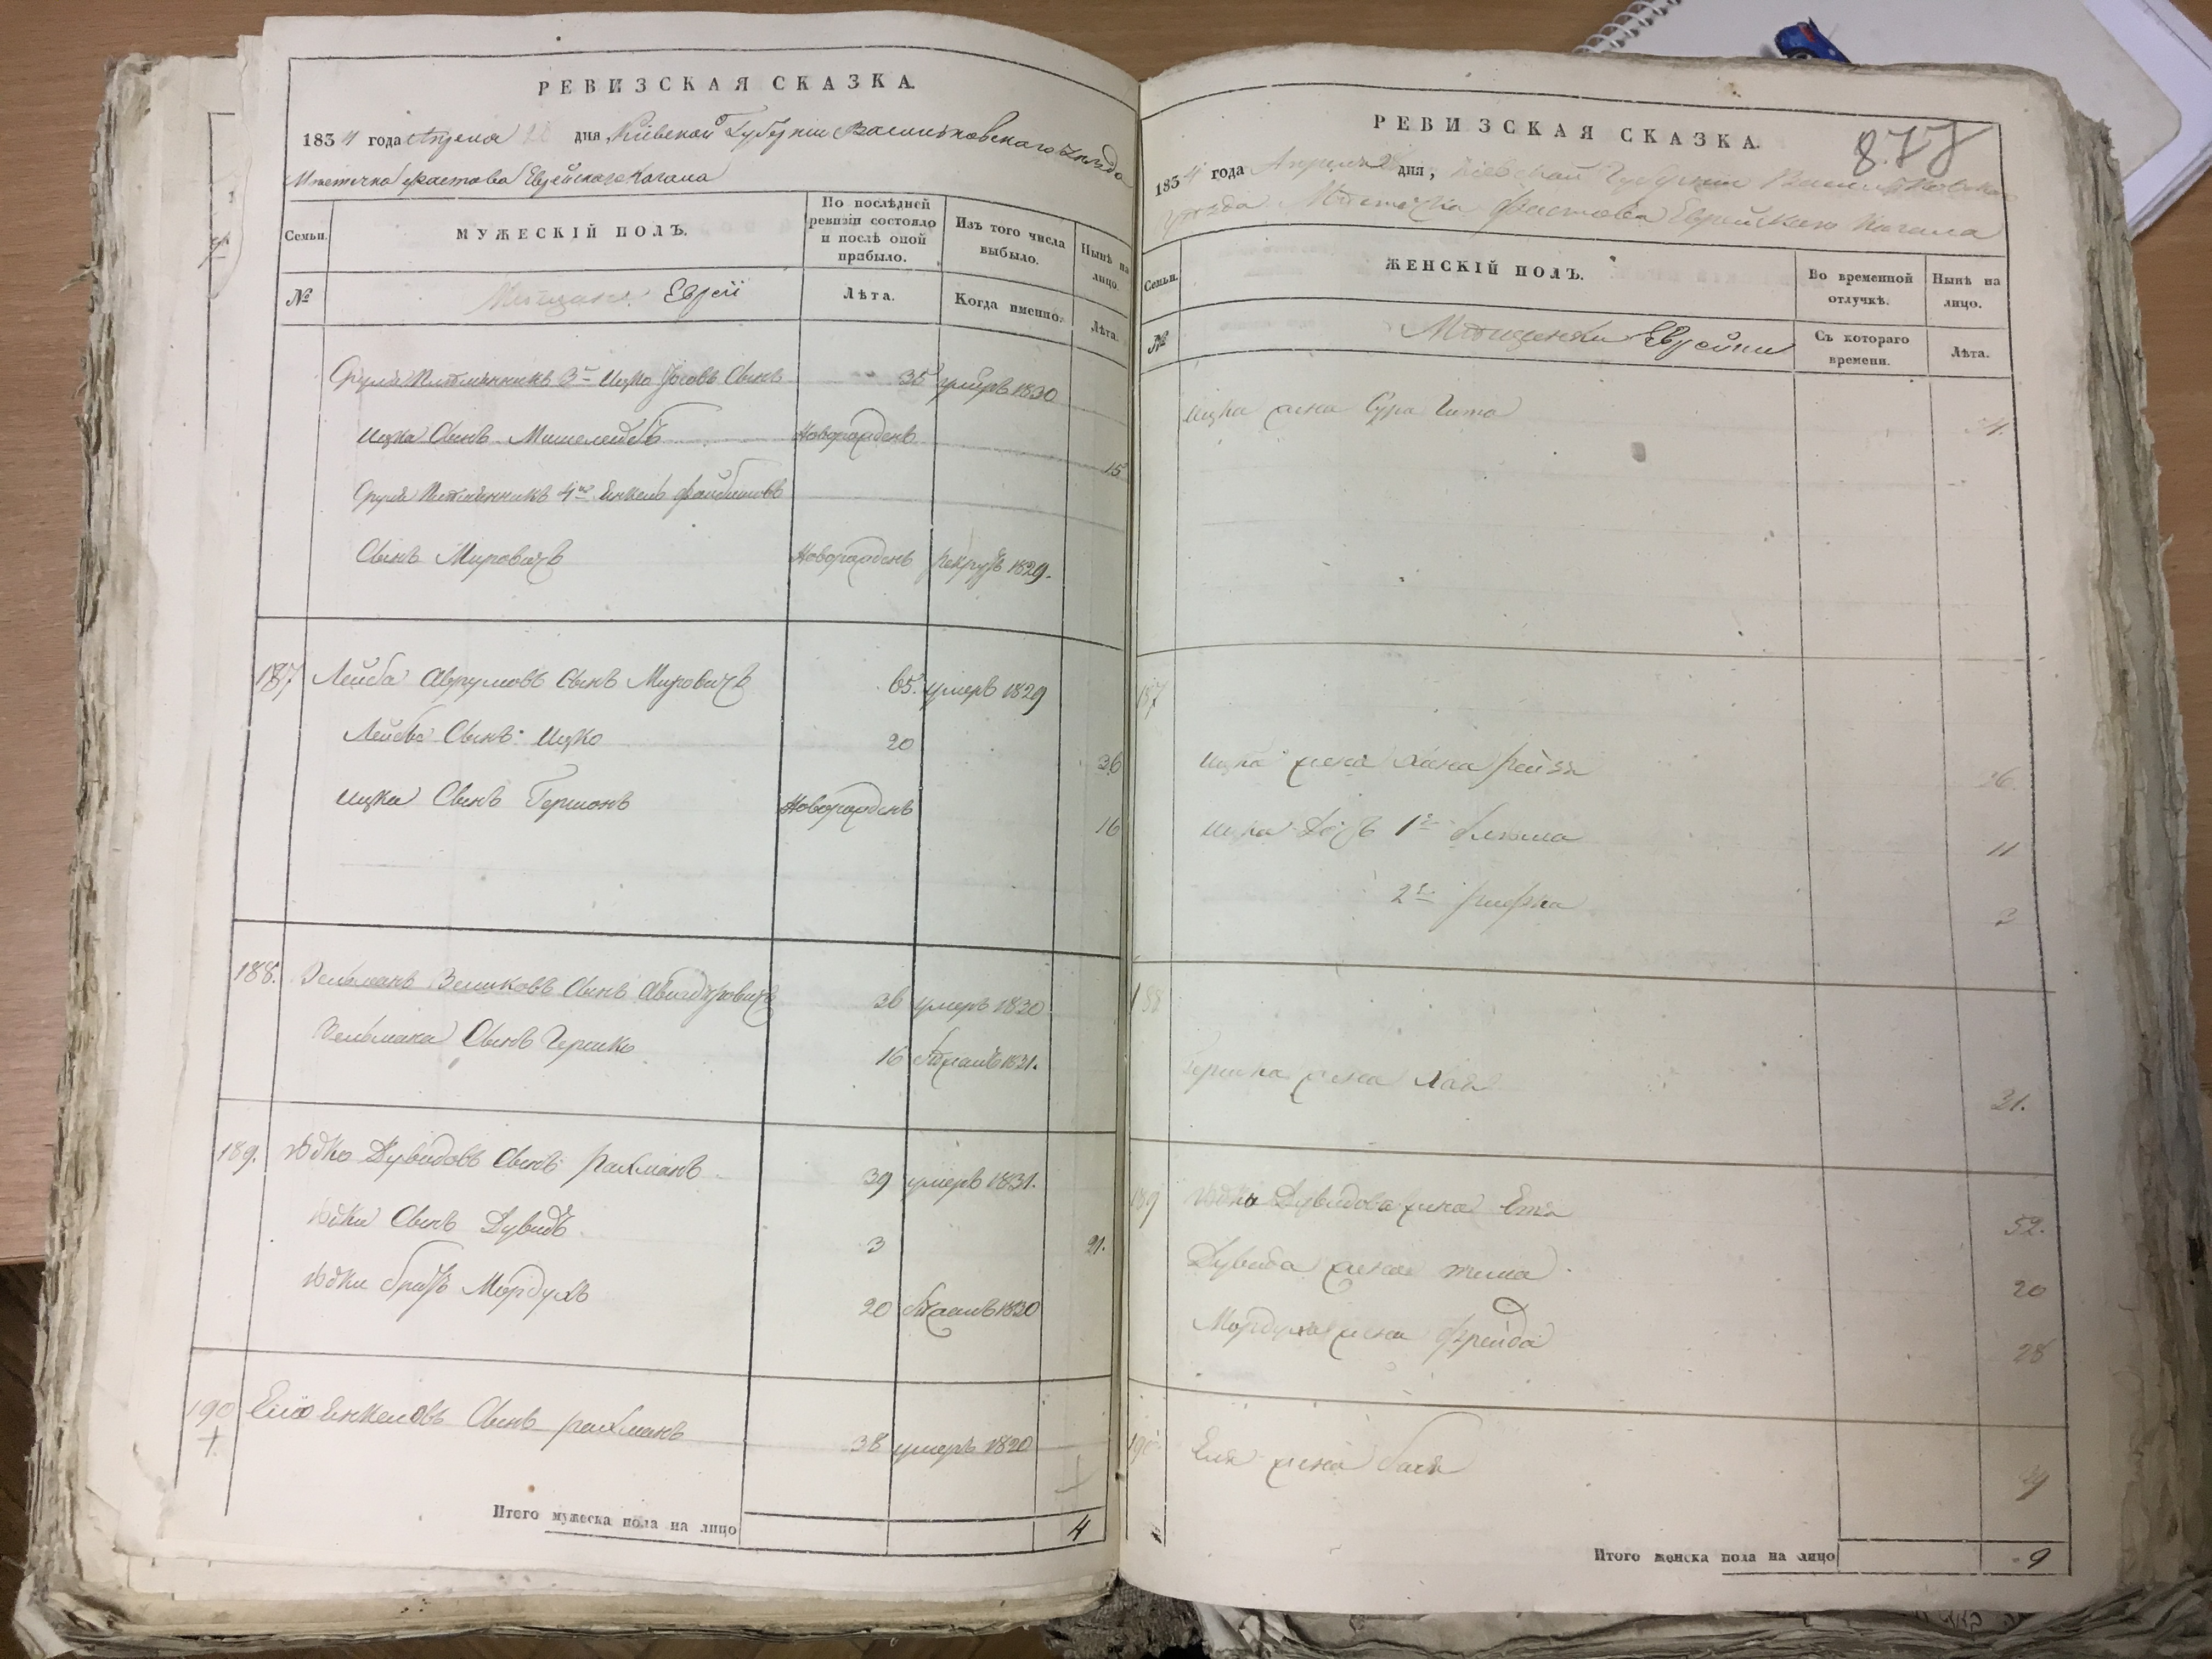 РЕВИЗСКАЯ СКАЗКА.
1834 года Апреля дня, Кіевской Губерніи Васильковского Уезда
Местечка Фастова Еврейского Кагала
Семьи.
МУЖЕСКІЙ ПОЛЪ.
По послѣдней ревизіи состояло и послѣ оной прибыло.
Изъ того числа выбыло.
Нынѣ на лицо.
№
Мещане Евреи
Лѣта.
Когда именно.
Лѣта.
Племянникъ 3й Ицко Іосовъ Сынъ 35 умеръ 1830
Ицка Сынъ Новорожденъ 15
Племянникъ 4й Янкель
Сынъ Мировичъ Новорожденъ рекрутъ 1829.
187 Лейба Аврумовъ Сынъ Мировичъ 65. умеръ 1829
Лейбы Сынъ Ицко 20 36
Ицка Сынъ Гершонъ Новорожденъ 16
188. Зельманъ Сынъ Авигдоровичъ 36 умеръ 1830
Зельмана Сынъ Гершко 16 1831.
189. Юдко Дувидовъ Сынъ Рахманъ 39 умеръ 1831.
Юдки Сынъ Дувидъ 3 21.
Юдки братъ Мордухъ 20 1830
190 Сынъ Рахманъ 38 умеръ 1820
Итого мужеска пола на лицо 4
РЕВИЗСКАЯ СКАЗКА.
877
1834 года Апреля дня, Кіевской Губерніи Васильковского
уезда Местечка Фастова Еврейского Кагала
Семьи.
ЖЕНСКІЙ ПОЛЪ.
Во временной отлучкѣ.
Нынѣ на лицо.
№
Мещанки Еврейки
Съ котораго времени.
Лѣта.
Ицка жена Сура Гита
187
Ицка жена Хана Рейзя 36.
Ицка Дочь 1я 11
2я Рифка
188
Гершка жена Хая 31.
189 Юдки Дувидова жена Етя 52.
Дувида жена 20
Мордуха жена Фрейда 28
190 Еля жена Бася
Итого женска пола на лицо 9